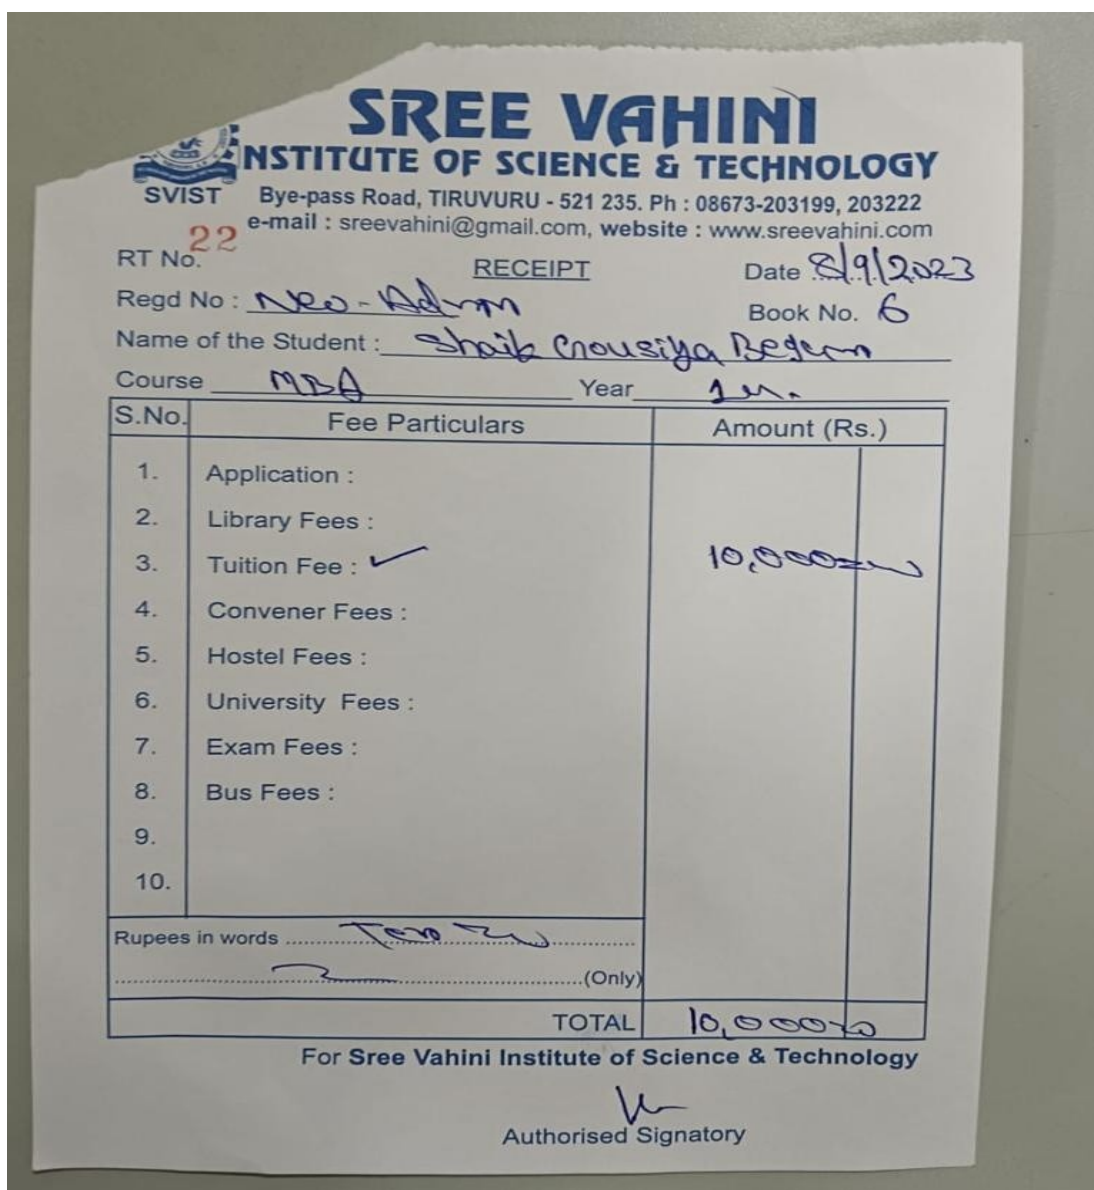 SREE VAHINI
INSTITUTE OF SCIENCE & TECHNOLOGY
SVIST
Bye-pass Road, TIRUVURU - 521 235. Ph : 08673-203199, 203222
e-mail : sreevahini@gmail.com, website : www.sreevahini.com
RT No. 22
RECEIPT
Date 8/9/2023
Regd No : New-Admn
Book No. 6
Name of the Student : Shaik Gousiya Begum
Course MBA Year
S.No. Fee Particulars Amount (Rs.)
1. Application :
2. Library Fees :
3. Tuition Fee : ✓ 10,000
4. Convener Fees :
5. Hostel Fees :
6. University Fees :
7. Exam Fees :
8. Bus Fees :
9.
10.
Rupees in words
(Only)
TOTAL 10,000
For Sree Vahini Institute of Science & Technology
Authorised Signatory